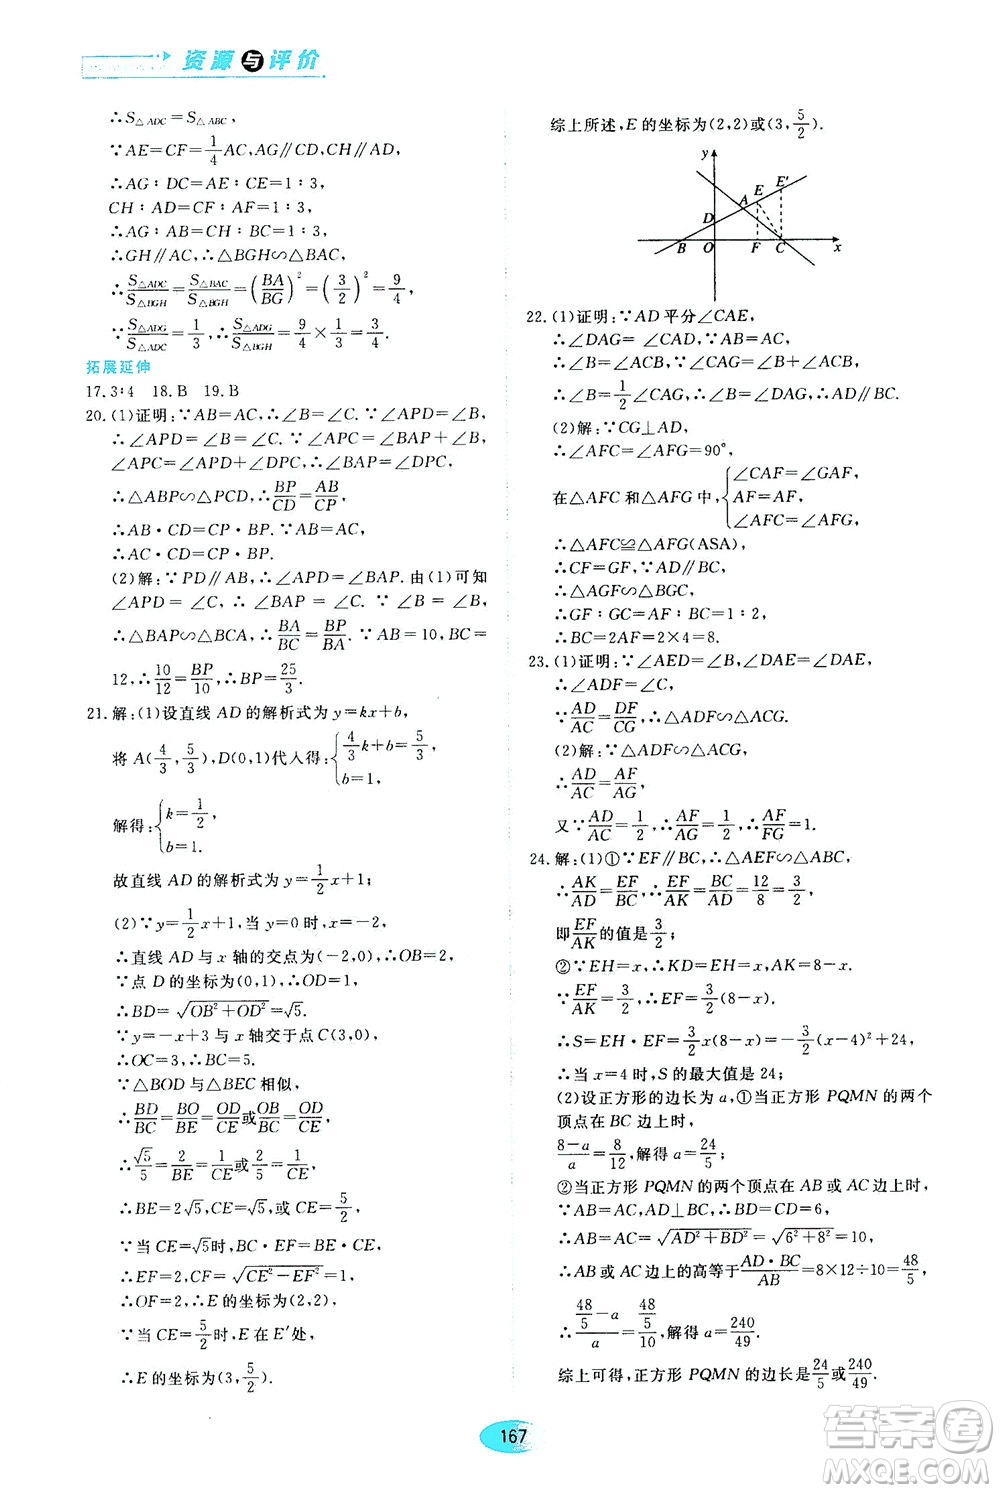 资源与评价
∴S△ADC=S△ABC,
∵AE=CF=1/4AC,AG∥CD,CH∥AD,
∴AG∶DC=AE∶CE=1∶3,
CH∶AD=CF∶AF=1∶3,
∴AG∶AB=CH∶BC=1∶3,
∴GH∥AC,∴△BGH∽△BAC,
∴S△ADC/S△BGH=S△BAC/S△BGH=(BA/BG)²=(3/2)²=9/4,
∵S△ADG/S△ADC=1/3,∴S△ADG/S△BGH=9/4×1/3=3/4.
拓展延伸
17.3∶4 18.B 19.B
20.(1)证明:∵AB=AC,∴∠B=∠C.∵∠APD=∠B,
∴∠APD=∠B=∠C.∵∠APC=∠BAP+∠B,
∠APC=∠APD+∠DPC,∴∠BAP=∠DPC,
∴△ABP∽△PCD,∴BP/CD=AB/CP,
∴AB·CD=CP·BP.∵AB=AC,
∴AC·CD=CP·BP.
(2)解:∵PD∥AB,∴∠APD=∠BAP.由(1)可知
∠APD=∠C,∴∠BAP=∠C.∵∠B=∠B,
∴△BAP∽△BCA,∴BA/BC=BP/BA.∵AB=10,BC=
12,∴10/12=BP/10,∴BP=25/3.
21.解:(1)设直线AD的解析式为y=kx+b,
将A(4/3,5/3),D(0,1)代入得:{4/3k+b=5/3,
b=1,
解得:{k=1/2,
b=1.
故直线AD的解析式为y=1/2x+1;
(2)∵y=1/2x+1,当y=0时,x=-2,
∴直线AD与x轴的交点为(-2,0),∴OB=2,
∵点D的坐标为(0,1),∴OD=1,
∴BD=√(OB²+OD²)=√5.
∵y=-x+3与x轴交于点C(3,0),
∴OC=3,∴BC=5.
∵△BOD与△BEC相似,
∴BD/BC=BO/BE=OD/CE或OB/BC=OD/CE,
∴√5/5=2/BE=1/CE或2/5=1/CE,
∴BE=2√5,CE=√5,或CE=5/2,
∵当CE=√5时,BC·EF=BE·CE,
∴EF=2,CF=√(CE²-EF²)=1,
∴OF=2,∴E的坐标为(2,2),
∵当CE=5/2时,E在E′处,
∴E的坐标为(3,5/2).
综上所述,E的坐标为(2,2)或(3,5/2).
y
E E′
A
D
B O F C x
22.(1)证明:∵AD平分∠CAE,
∴∠DAG=∠CAD,∵AB=AC,
∴∠B=∠ACB,∵∠CAG=∠B+∠ACB,
∴∠B=1/2∠CAG,∴∠B=∠DAG,∴AD∥BC.
(2)解:∵CG⊥AD,
∴∠AFC=∠AFG=90°,
在△AFC和△AFG中,{∠CAF=∠GAF,
AF=AF,
∠AFC=∠AFG,
∴△AFC≌△AFG(ASA),
∴CF=GF.∵AD∥BC,
∴△AGF∽△BGC,
∴GF∶GC=AF∶BC=1∶2,
∴BC=2AF=2×4=8.
23.(1)证明:∵∠AED=∠B,∠DAE=∠DAE,
∴∠ADF=∠C,
∵AD/AC=DF/CG,∴△ADF∽△ACG.
(2)解:∵△ADF∽△ACG,
∴AD/AC=AF/AG,
又∵AD/AC=1/2,∴AF/AG=1/2,∴AF/FG=1.
24.解:(1)①∵EF∥BC,∴△AEF∽△ABC,
∴AK/AD=EF/BC,∴EF/AK=BC/AD=12/8=3/2,
即EF/AK的值是3/2;
②∵EH=x,∴KD=EH=x,AK=8-x,
∵EF/AK=3/2,∴EF=3/2(8-x).
∴S=EH·EF=3/2x(8-x)=-3/2(x-4)²+24,
∴当x=4时,S的最大值是24;
(2)设正方形的边长为a,①当正方形PQMN的两个
顶点在BC边上时,
8-a/a=8/12,解得a=24/5;
②当正方形PQMN的两个顶点在AB或AC边上时,
∵AB=AC,AD⊥BC,∴BD=CD=6,
∴AB=AC=√(AD²+BD²)=√(6²+8²)=10,
∴AB或AC边上的高等于AD·BC/AB=8×12÷10=48/5,
∴(48/5-a)/a=(48/5)/10,解得a=240/49.
综上可得,正方形PQMN的边长是24/5或240/49.
167
答案圈
MXQE.COM